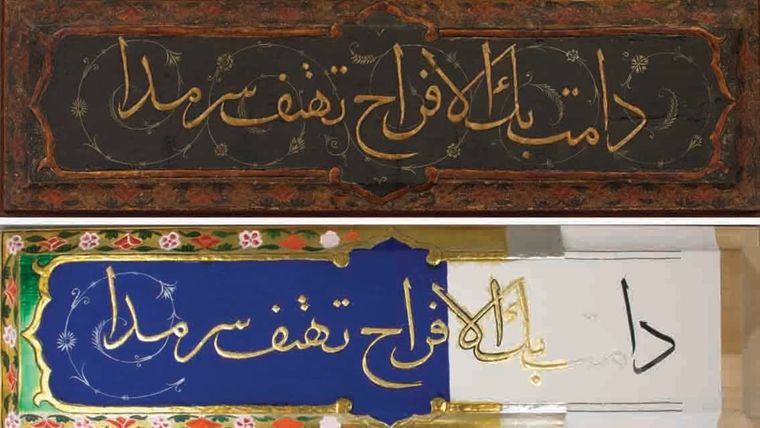 دامت بك الافراح تهتف سرمدا
دامت بك الافراح تهتف سرمدا